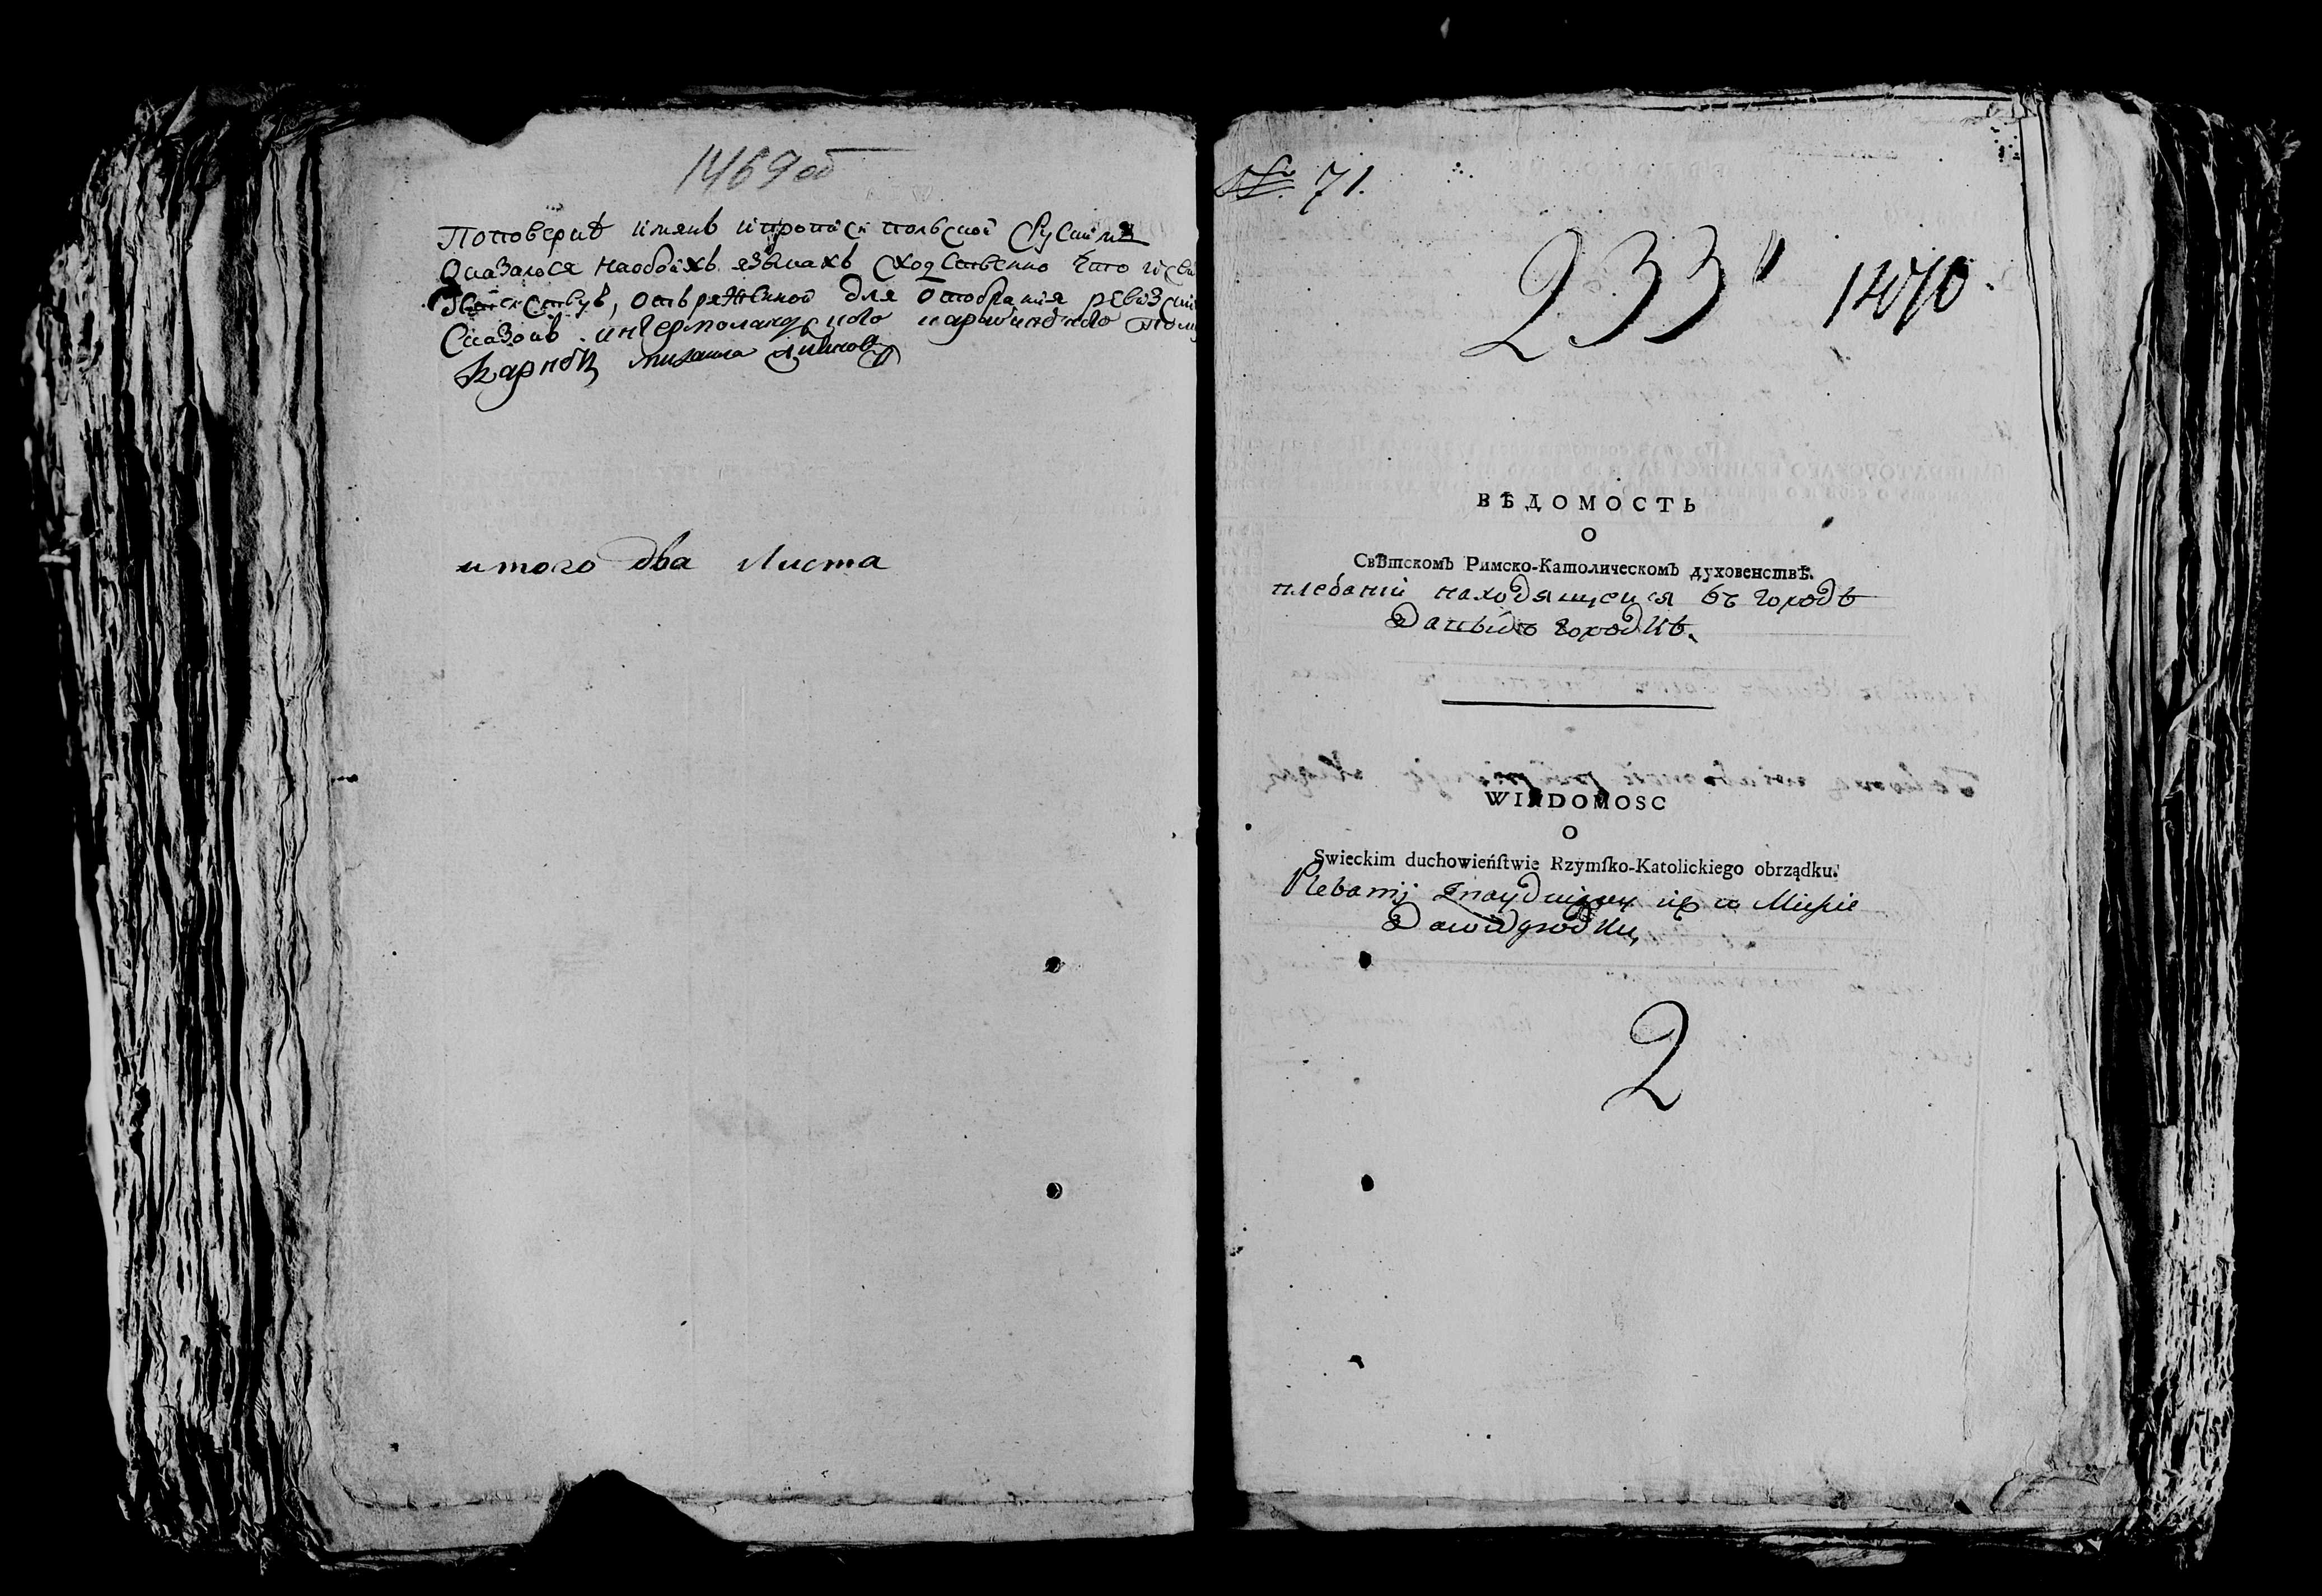 1469 об
Поповерке имянъ ипрописи польской Сруским
Оказалося наобоихъ языкахъ сходственно что и свѣ
отряженной для отобрания ревизски
Сказокъ ингермоландского карабинерного полку
Карнетъ михаила
итого два Листа
№ 71.
233 1470.
ВѢДОМОСТЬ
О
Свѣтскомъ Римско-Католическомъ духовенствѣ.
плебаніи находящеися въ городѣ
Давыдъ городкѣ.
WIADOMOSC
O
Swieckim duchowieńſtwie Rzymſko-Katolickiego obrządku.
Plebanij Znayduiącey się w Mieście
Dawidgrodku,
2